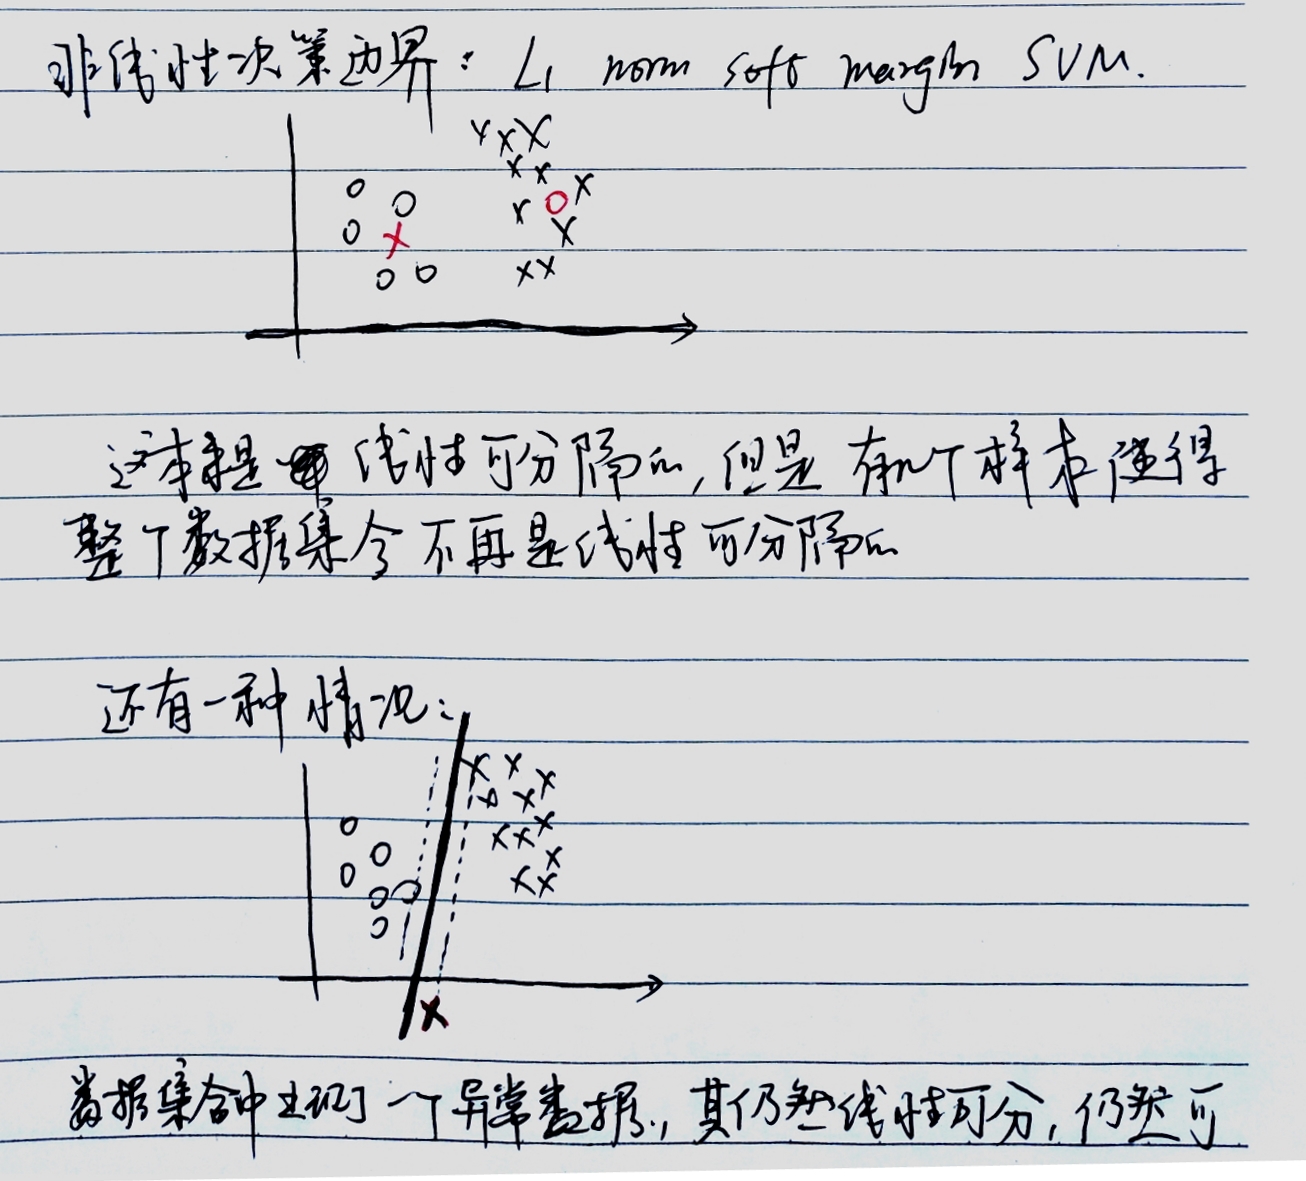 非线性决策边界: L1 norm soft margin SVM.
这本来是 线性可分隔的,但是 有几个样本使得
整个数据集合不再是线性可分隔的
还有一种情况:
数据集合中出现了一个异常数据, 其仍然线性可分, 仍然可